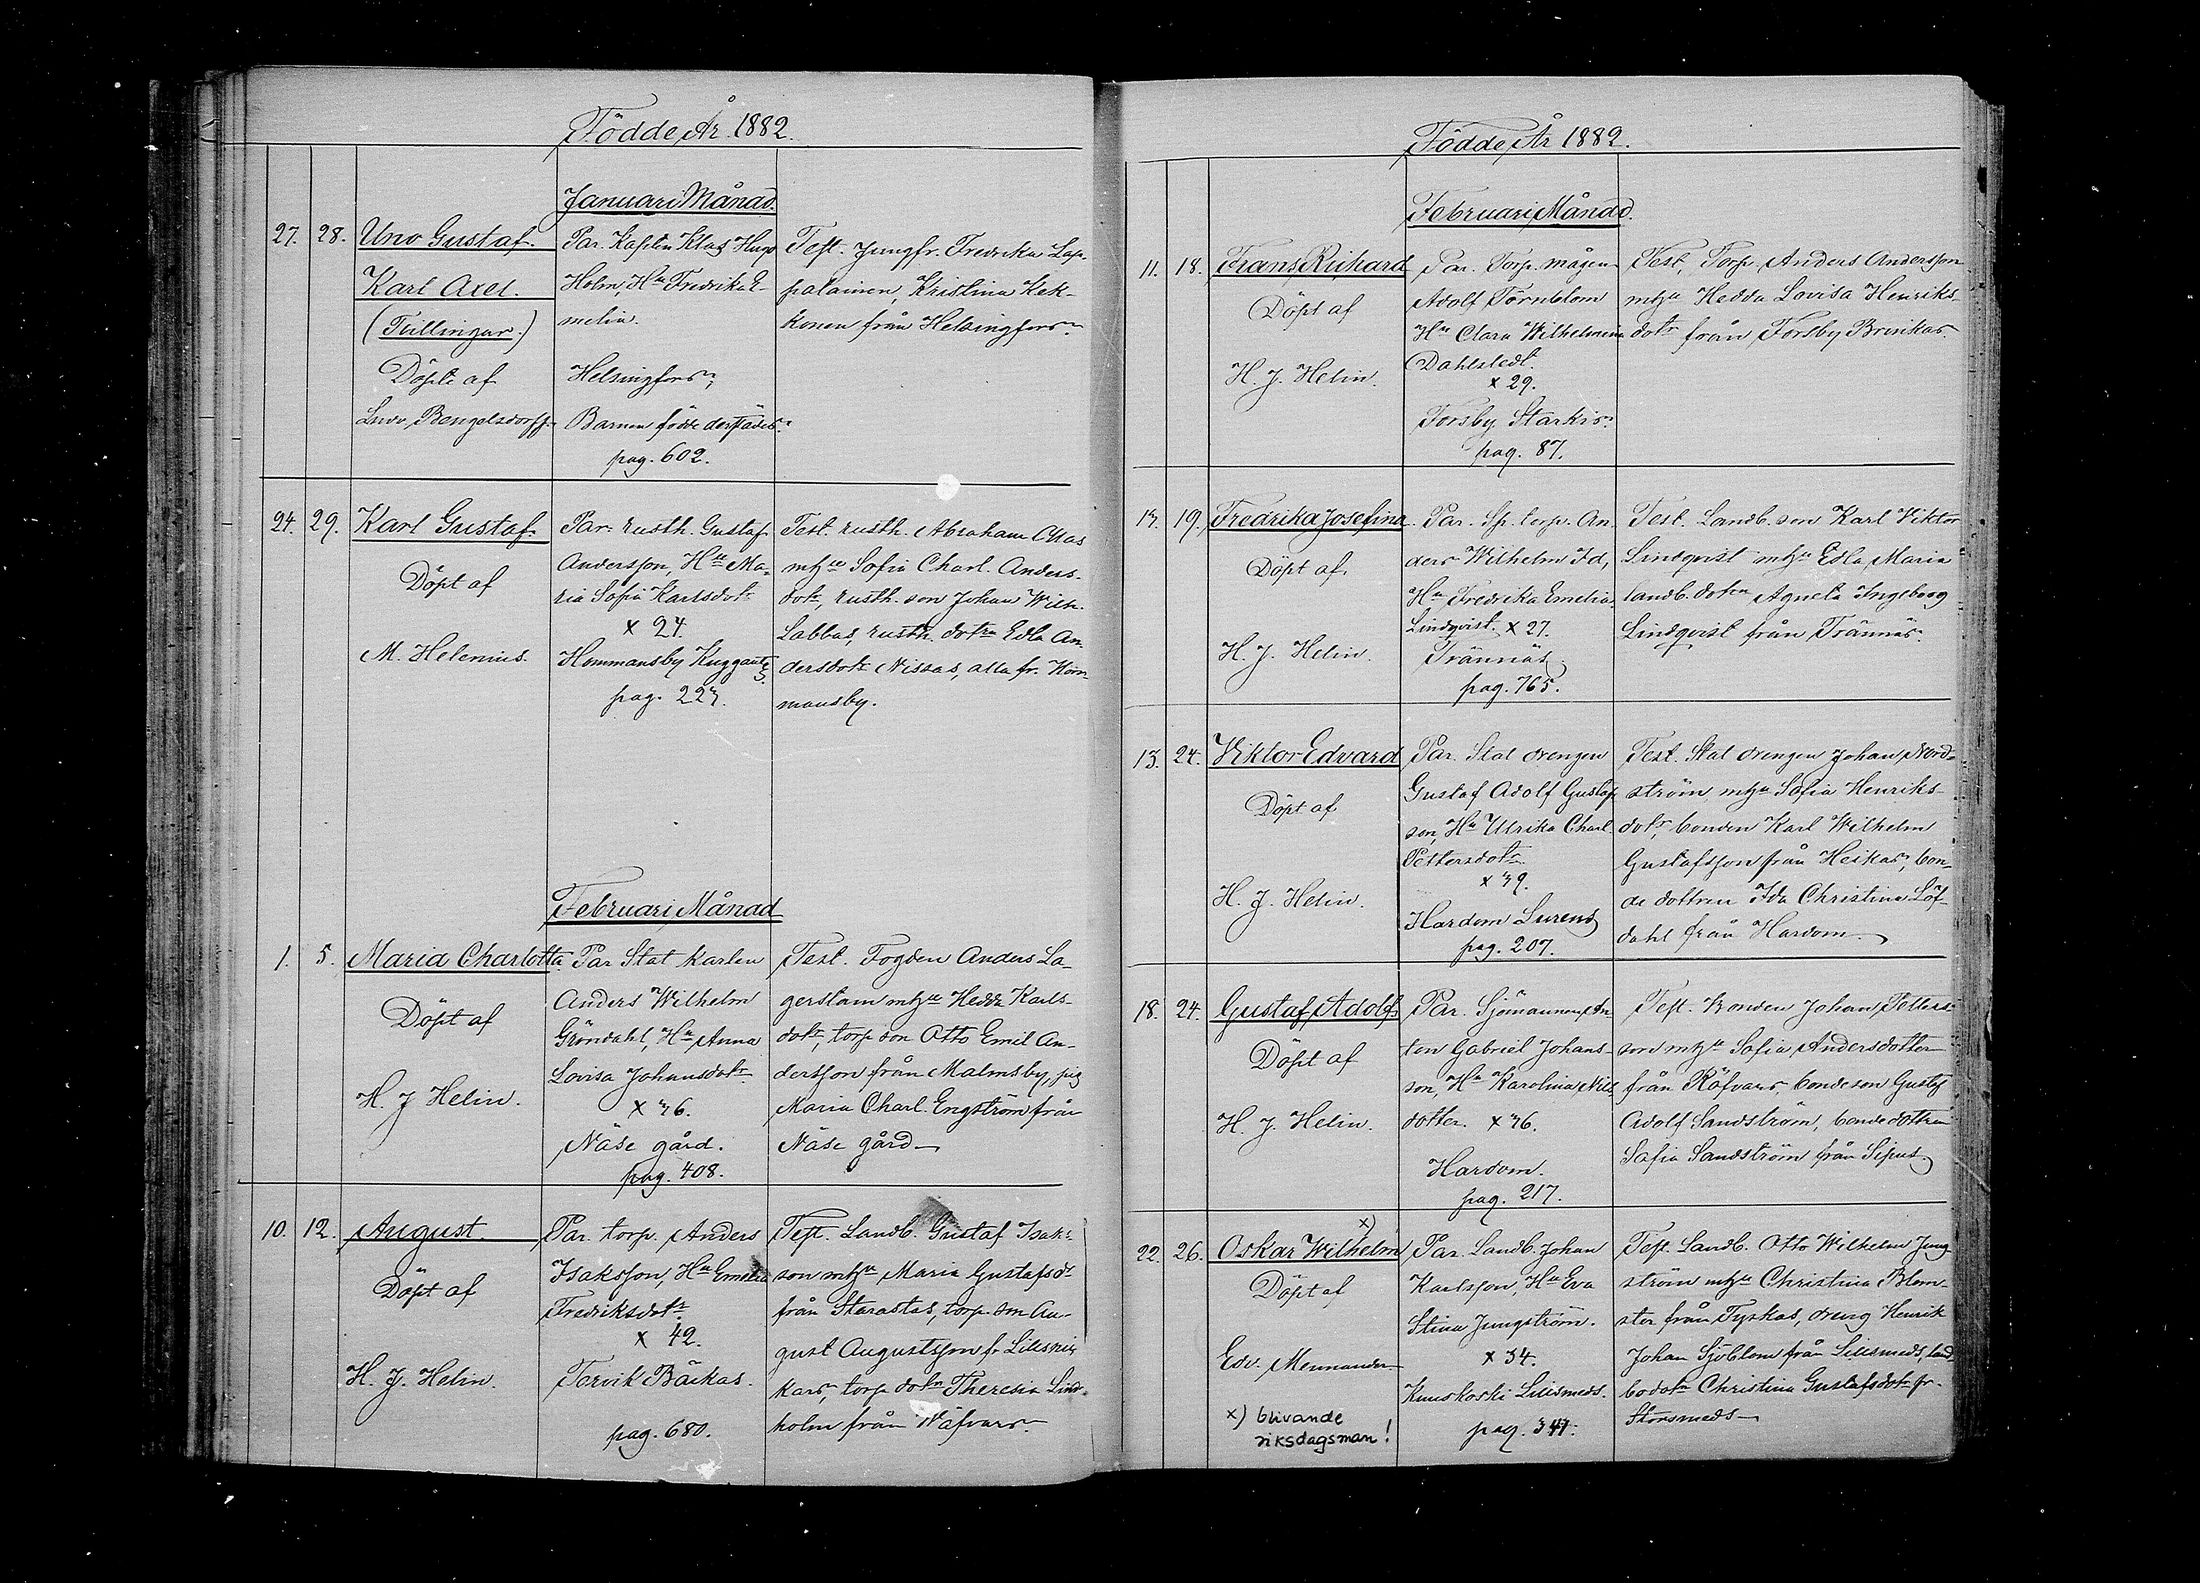 Födde År 1882.
Januari Månad.
27. 28. Uno Gustaf.
Karl Axel.
(Tvillingar.)
Döpte af
Ludv. Bengelsdorff
Par. Kapten Klas Hugo
Holm, Hu Fredrika E-
melia.
Helsingfors,
Barnen födde derstädes.
pag. 602.
Test. Jungfr. Fredrika Lap-
palainen, Kristina Kek-
konen från Helsingfors
24. 29. Karl Gustaf.
Döpt af
M. Helenius.
Par. rusth. Gustaf
Andersson, Hu Ma-
ria Sofia Karlsdotr
x 24.
Hommansby Kuggants
pag. 227.
Test. rusth. Abraham Clas
mhu Sofia Charl. Anders-
dotr, rusth. son Johan Wilh.
Labbas, rusth. dotrn Edla An-
dersdotr Nissas, alla fr. Hom-
mansby.
Februari Månad
1. 5. Maria Charlotta.
Döpt af
H. J. Helin.
Par Stat karlen
Anders Wilhelm
Gröndahl, Hu Anna
Lovisa Johansdotr
x 36.
Näse gård.
pag. 408.
Test. Fogden Anders La-
gerstam mhu Hedda Karls-
dotr, torp son Otto Emil An-
dersson från Malmsby, pig
Maria Charl. Engström från
Näse gård
10. 12. August.
Döpt af
H. J. Helin.
Par. torp. Anders
Isaksson, Hu Emelia
Fredriksdotr
x 42.
Tervik Bäckas.
pag. 680.
Test. Landb. Gustaf Isak-
son mhu Maria Gustafsd.
från Starastas, torp. son Au-
gust Augustsson fr
kars, torp dotrn Theresia Lind-
holm från Räfvars
Födde År 1882.
Februari Månad.
11. 18. Frans Richard
Döpt af
H. J. Helin.
Par. Torp. mågen
Adolf Törnblom
Hu Clara Wilhelmina
Dahlstedt.
x 29.
Forsby Starkis
pag. 87.
Test. Torp. Anders Andersson
mhu Hedda Lovisa Henriks
dotr från Forsby Brinkas.
13. 19. Fredrika Josefina
Döpt af
H. J. Helin.
Par. Sp. torp. An-
ders Wilhelm Id,
Hu Fredrika Emelia
Lindqvist. x 27.
Trännäs
pag. 765.
Test. Landb. son Karl Viktor
Lindqvist mhu Edla Maria
landb. dotrn Agneta Ingeborg
Lindqvist från Trännäs.
13. 24. Viktor Edvard
Döpt af
H. J. Helin.
Par. Stat drengen
Gustaf Adolf Gustafs
son, Hu Ulrika Charl.
Pettersdotr
x 39.
Hardom Lurens
pag. 207.
Test. Stat drengen Johan Nord-
ström mhu Sofia Henriks-
dotr, bonden Karl Wilhelm
Gustafsson från Heikas, bon-
de dottren Ida Christina Löf-
dahl från Hardom
18. 24. Gustaf Adolf
Döpt af
H. J. Helin.
Par. Sjömannen An-
ton Gabriel Johans-
son, Hu Karolina Nils
dotter. x 36.
Hardom.
pag. 217.
Test. Bonden Johan Petters-
son mhu Sofia Andersdotter
från Räfvars, bonde son Gustaf
Adolf Sandström, bondedottren
Sofia Sandström från Sipus
22. 26. Oskar Wilhelm x)
Döpt af
Edv. Mennander
x) blivande
riksdagsman!
Par. Landb. Johan
Karlsson, Hu Eva
Stina Jungström.
x 34.
Kuuskoski Lillsmeds.
pag. 341.
Test. Landb. Otto Wilhelm Jung
ström mhu Christina Blom-
ster från Tyskas, dreng Henrik
Johan Sjöblom från Lillsmeds, land
bodotrn Christina Gustafsdotr fr.
Storsmeds